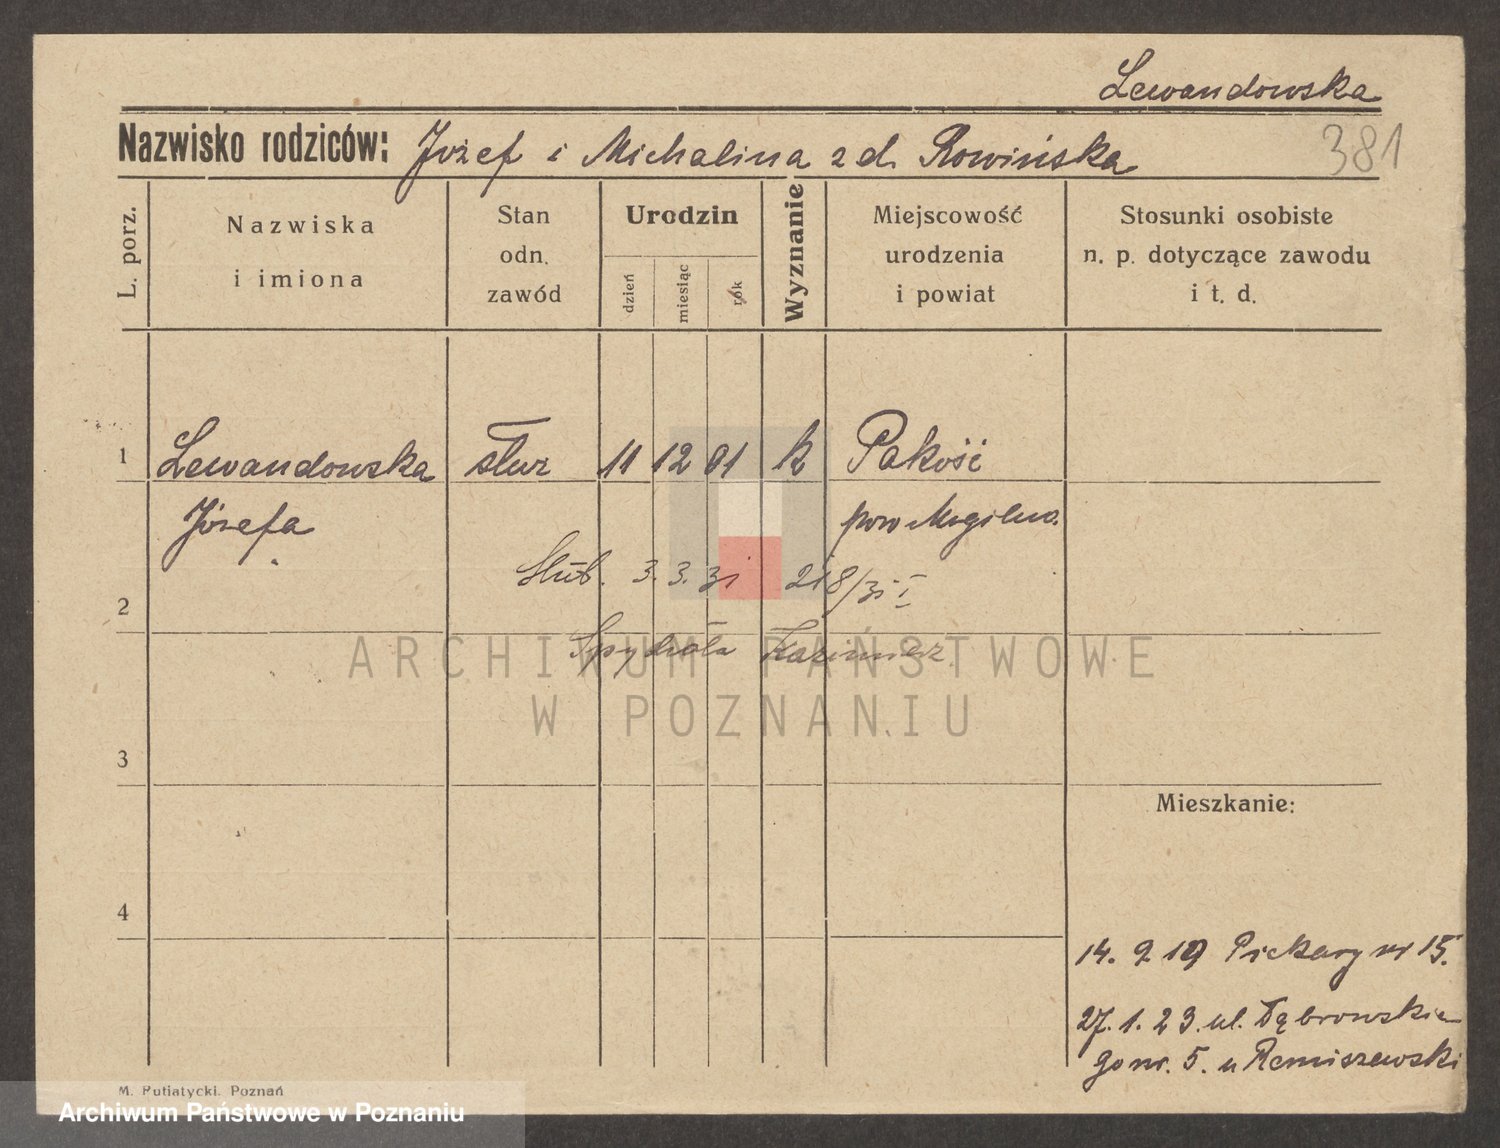 Lewandowska
Nazwisko rodziców: Józef i Michalina z d. Rowińska
381
L. porz.
Nazwiska
i imiona
Stan
odn.
zawód
Urodzin
dzień
miesiąc
rok
Wyznanie
Miejscowość
urodzenia
i powiat
Stosunki osobiste
n. p. dotyczące zawodu
i t. d.
1 Lewandowska służ 11 12 01 k Pakość
Józefa pow Mogilno.
Ślub. 3. 3. 31 218/31 I
2
Spychała Kazimierz
ARCHIWUM PAŃSTWOWE
W POZNANIU
3
Mieszkanie:
4
14. 9 19 Piekary nr 15.
27. 1. 23. ul. Dąbrowskie
go nr. 5. u Remiszewski
M. Putiatycki. Poznań
Archiwum Państwowe w Poznaniu